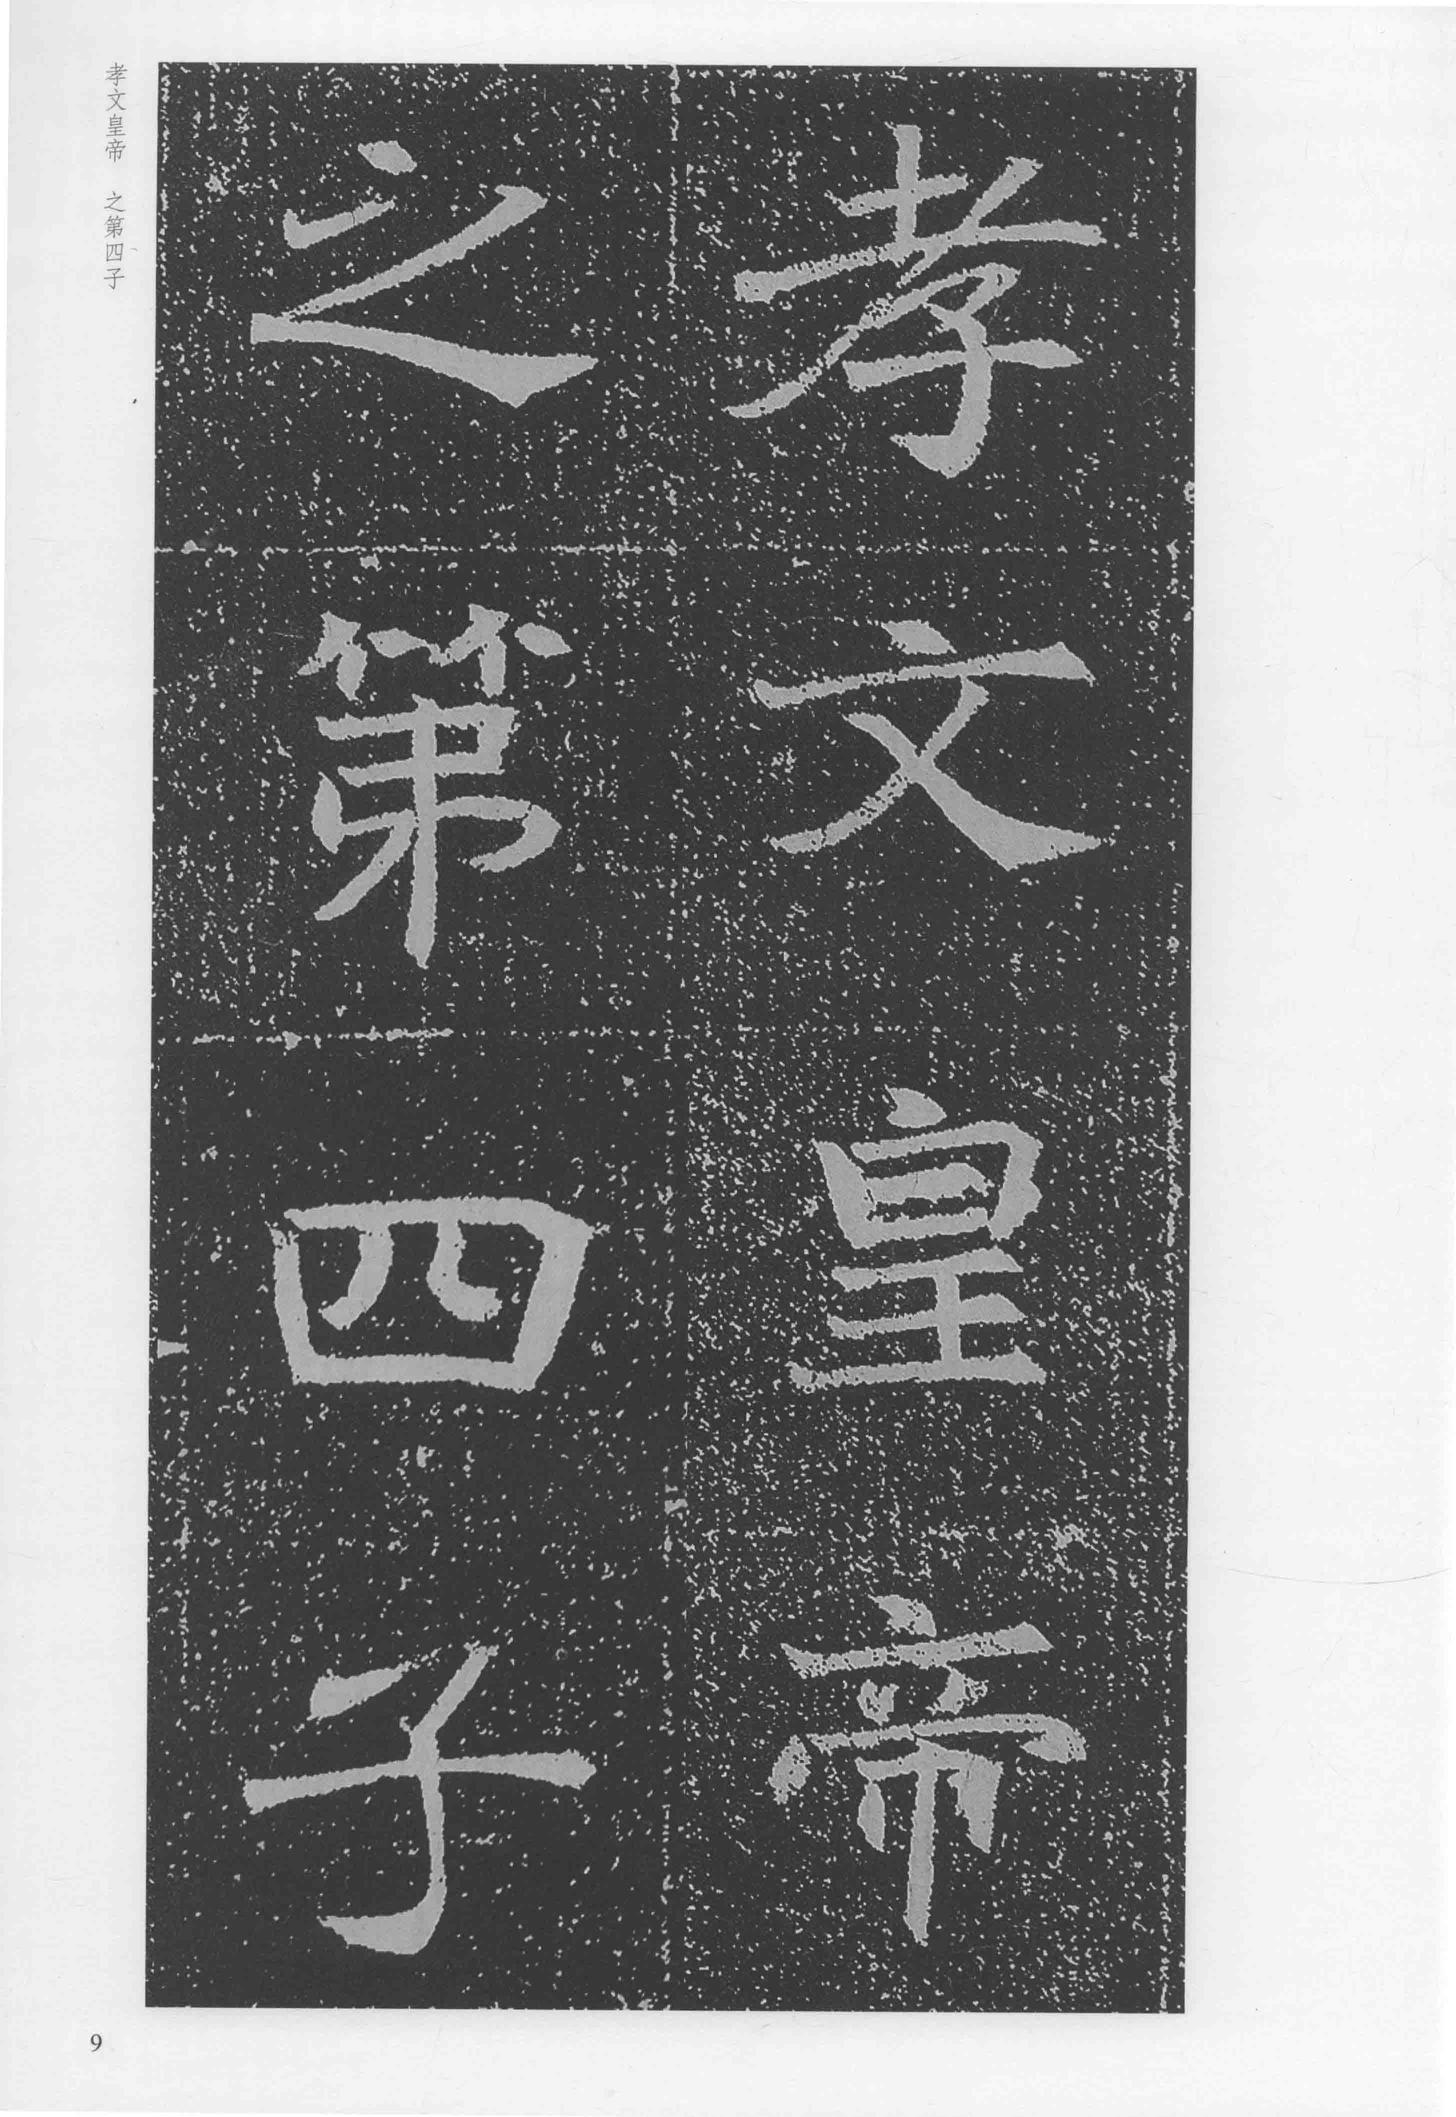 孝文皇帝
之第四子
孝文皇帝　之第四子
9